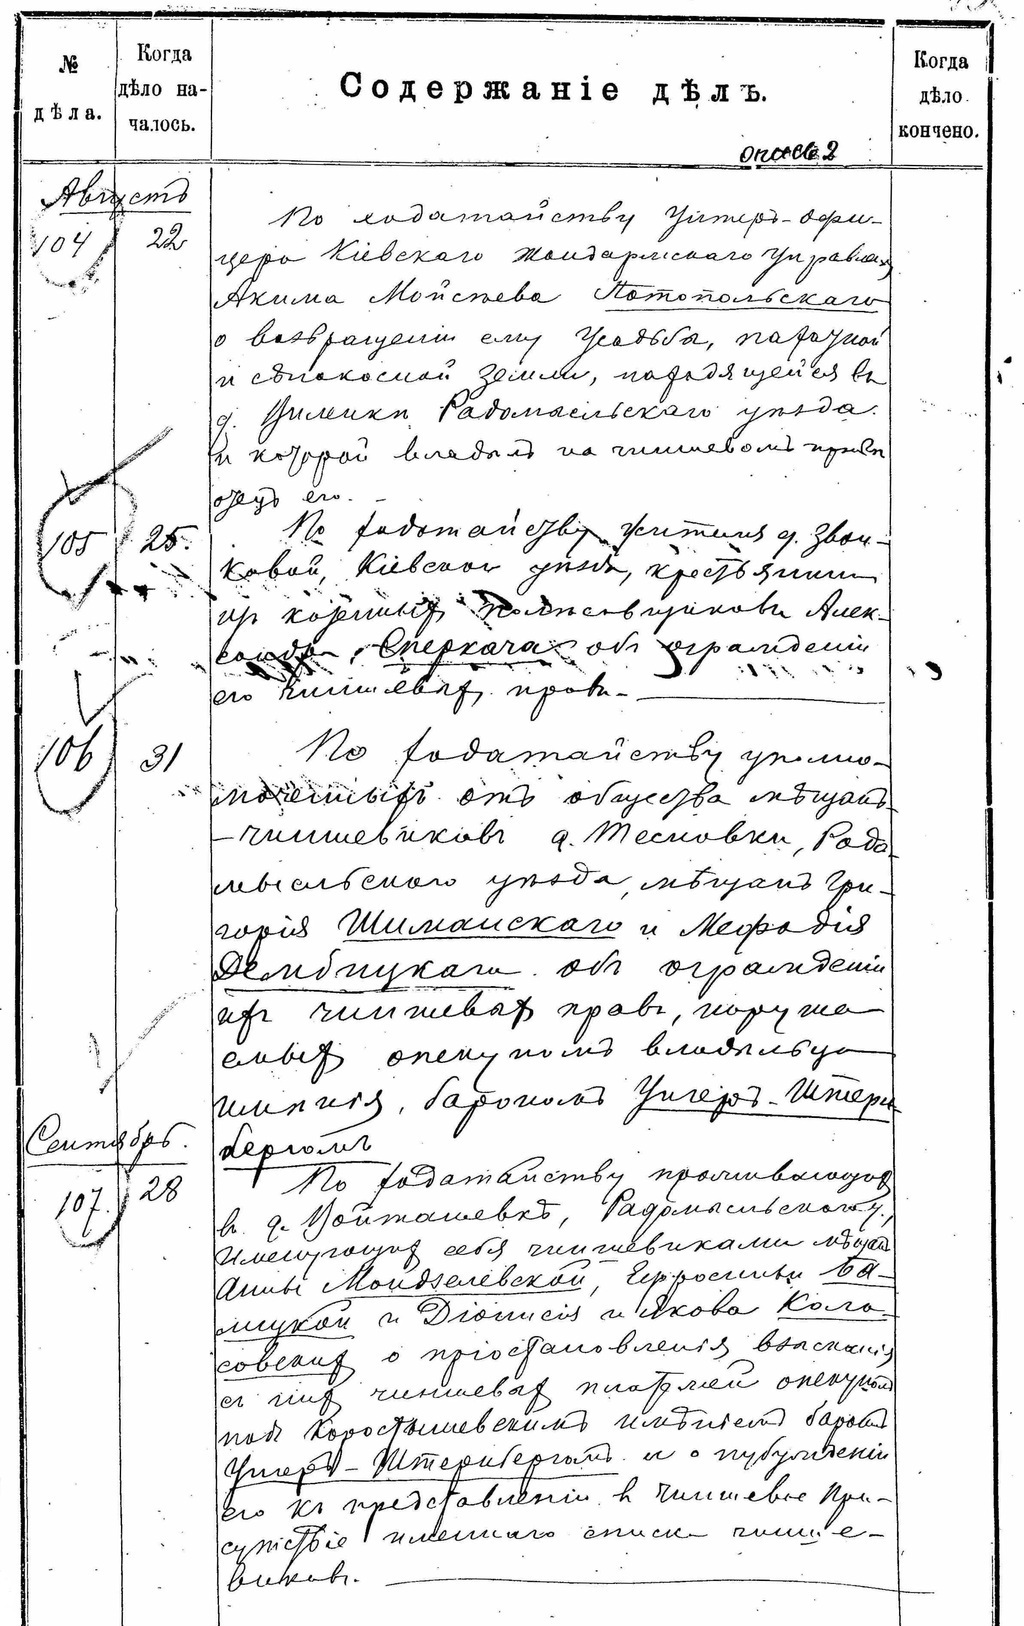 №
дѣла.
Когда
дѣло на-
чалось.
Содержаніе дѣлъ.
Когда
дѣло
кончено.
опись 2
Августъ
104 22
По ходатайству Унтеръ-Офи-
цера Кіевскаго Жандармскаго Управлен.
Акима Мойсѣева Потопольскаго
о возвращеніи ему усадьбы, пахатной
и сѣнокосной земли, находящейся въ
д. Радомысльскаго уѣзда
и которой владѣлъ на чиншевомъ правѣ
отецъ его.
105 25.
По ходатайству жителя д. Звон-
ковой, Кіевскаго уѣзда, крестьянина
изъ Алек-
сандра Сперкача объ огражденіи
его чиншевыхъ правъ.
106 31
По ходатайству уполно-
моченныхъ отъ общества мѣщанъ-
-чиншевиковъ д. Тесновки, Радо-
мысльскаго уѣзда, мѣщанъ Гри-
горія Шиманскаго и Мефодія
Дембицкаго объ огражденіи
ихъ чиншевыхъ правъ, наруша
емыхъ опекуномъ владѣльца
имѣнія, барономъ Унгеръ-Штерн-
бергомъ
Сентябрь.
107. 28
По ходатайству проживающихъ
въ д. Войташевкѣ, Радомысльскаго у.,
именующихъ себя чиншевиками мѣщан
Анны Мондзелевской, Ба-
мицкой и Діонисія и Якова Коло-
совскихъ о пріостановленіи взысканія
съ нихъ чиншевыхъ платежей опекуномъ
надъ Коростышевскимъ имѣніемъ барономъ
Унгеръ-Штернбергомъ и о побужденіи
его къ представленію въ Чиншевое При-
сутствіе именнаго списка чинше-
виковъ.